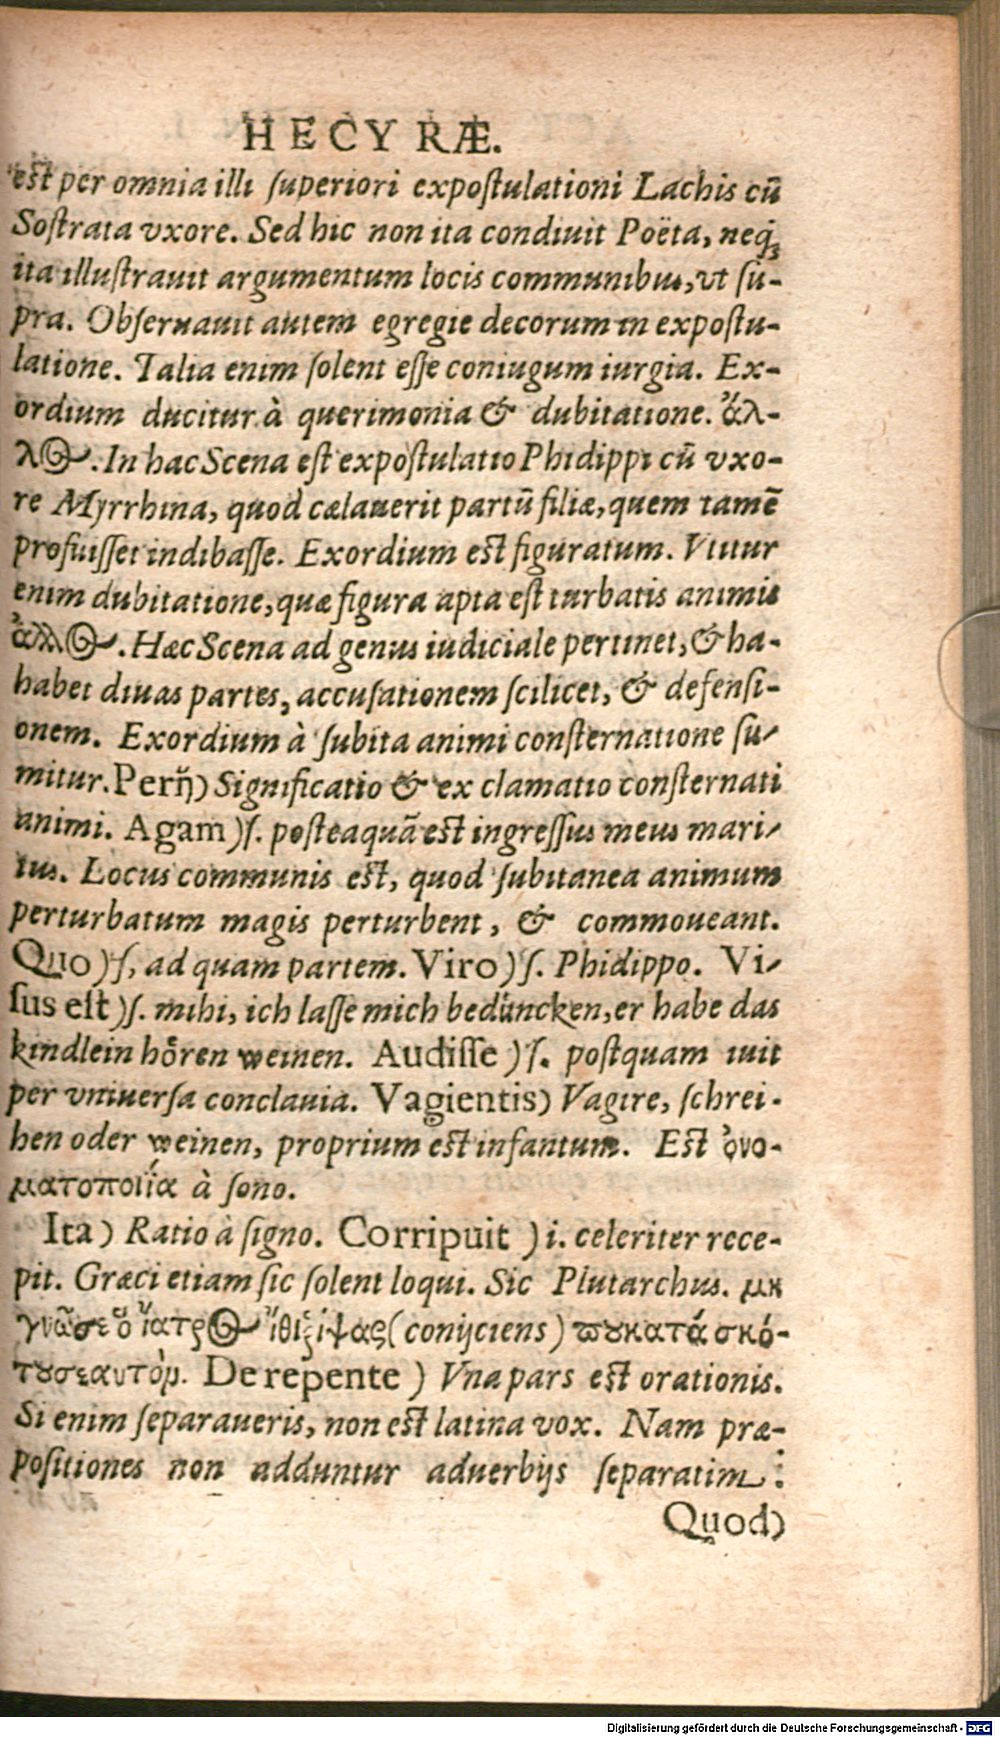 HECYRÆ.
est per omnia illi superiori expostulationi Lachis cū
Sostrata vxore. Sed hic non ita condiuit Poëta, neq́;
ita illustrauit argumentum locis communibus, vt su-
pra. Obseruauit autem egregie decorum in expostu-
latione. Talia enim solent esse coniugum iurgia. Ex-
ordium ducitur à querimonia & dubitatione. ἄλ-
λος. In hac Scena est expostulatio Phidippi cū vxo-
re Myrrhina, quod cælauerit partū filiæ, quem tamē
profuisset indicasse. Exordium est figuratum. Vtitur
enim dubitatione, quæ figura apta est turbatis animis
ἄλλος. Hæc Scena ad genus iudiciale pertinet, & ha-
habet duas partes, accusationem scilicet, & defensi-
onem. Exordium à subita animi consternatione su-
mitur. Perij) Significatio & exclamatio consternati
animi. Agam) s. posteaquā est ingressus meus mari-
tus. Locus communis est, quod subitanea animum
perturbatum magis perturbent, & commoueant.
Quo) s, ad quam partem. Viro) s. Phidippo. Vi-
sus est) s. mihi, ich lasse mich bedüncken, er habe das
kindlein hören weinen. Audisse) s. postquam iuit
per vniuersa conclauia. Vagientis) Vagire, schrei-
hen oder weinen, proprium est infantum. Est ὀνο-
ματοποιΐα à sono.
Ita) Ratio à signo. Corripuit) i. celeriter rece-
pit. Græci etiam sic solent loqui. Sic Plutarchus. μὴ
γνῶσε ὅ ἰατρος (conijciens) που κατά σκό-
τους εαυτὸμ. De repente) Vna pars est orationis.
Si enim separaueris, non est latina vox. Nam præ-
positiones non adduntur aduerbijs separatim:
Quod)
Digitalisierung gefördert durch die Deutsche Forschungsgemeinschaft - DFG